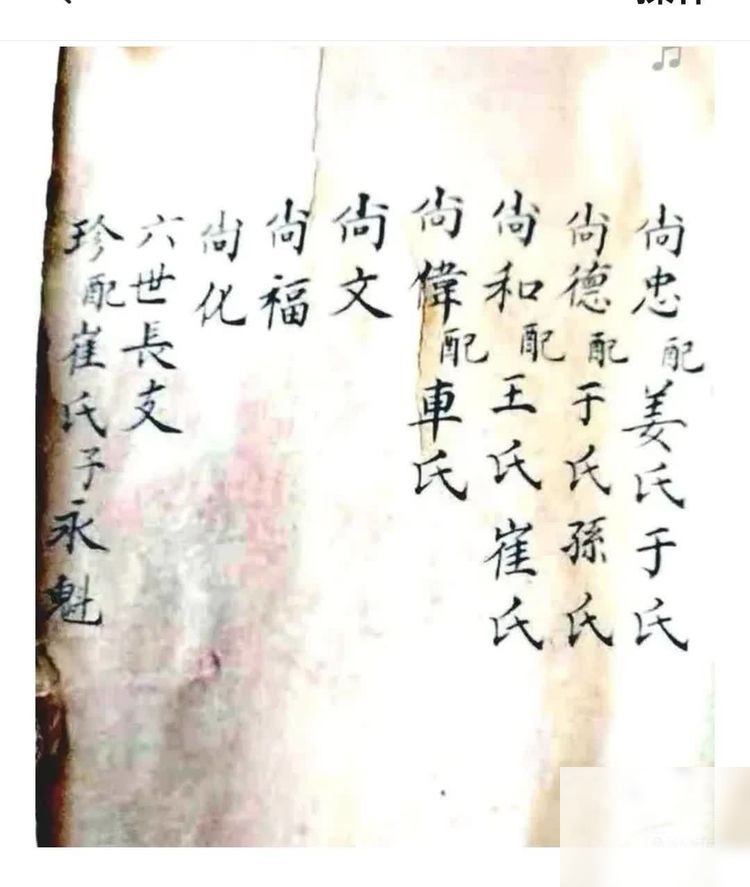 尚忠配姜氏于氏
尚德配于氏孫氏
尚和配王氏崔氏
尚偉配車氏
尚文
尚福
尚化
六世長支
珍配崔氏子永魁